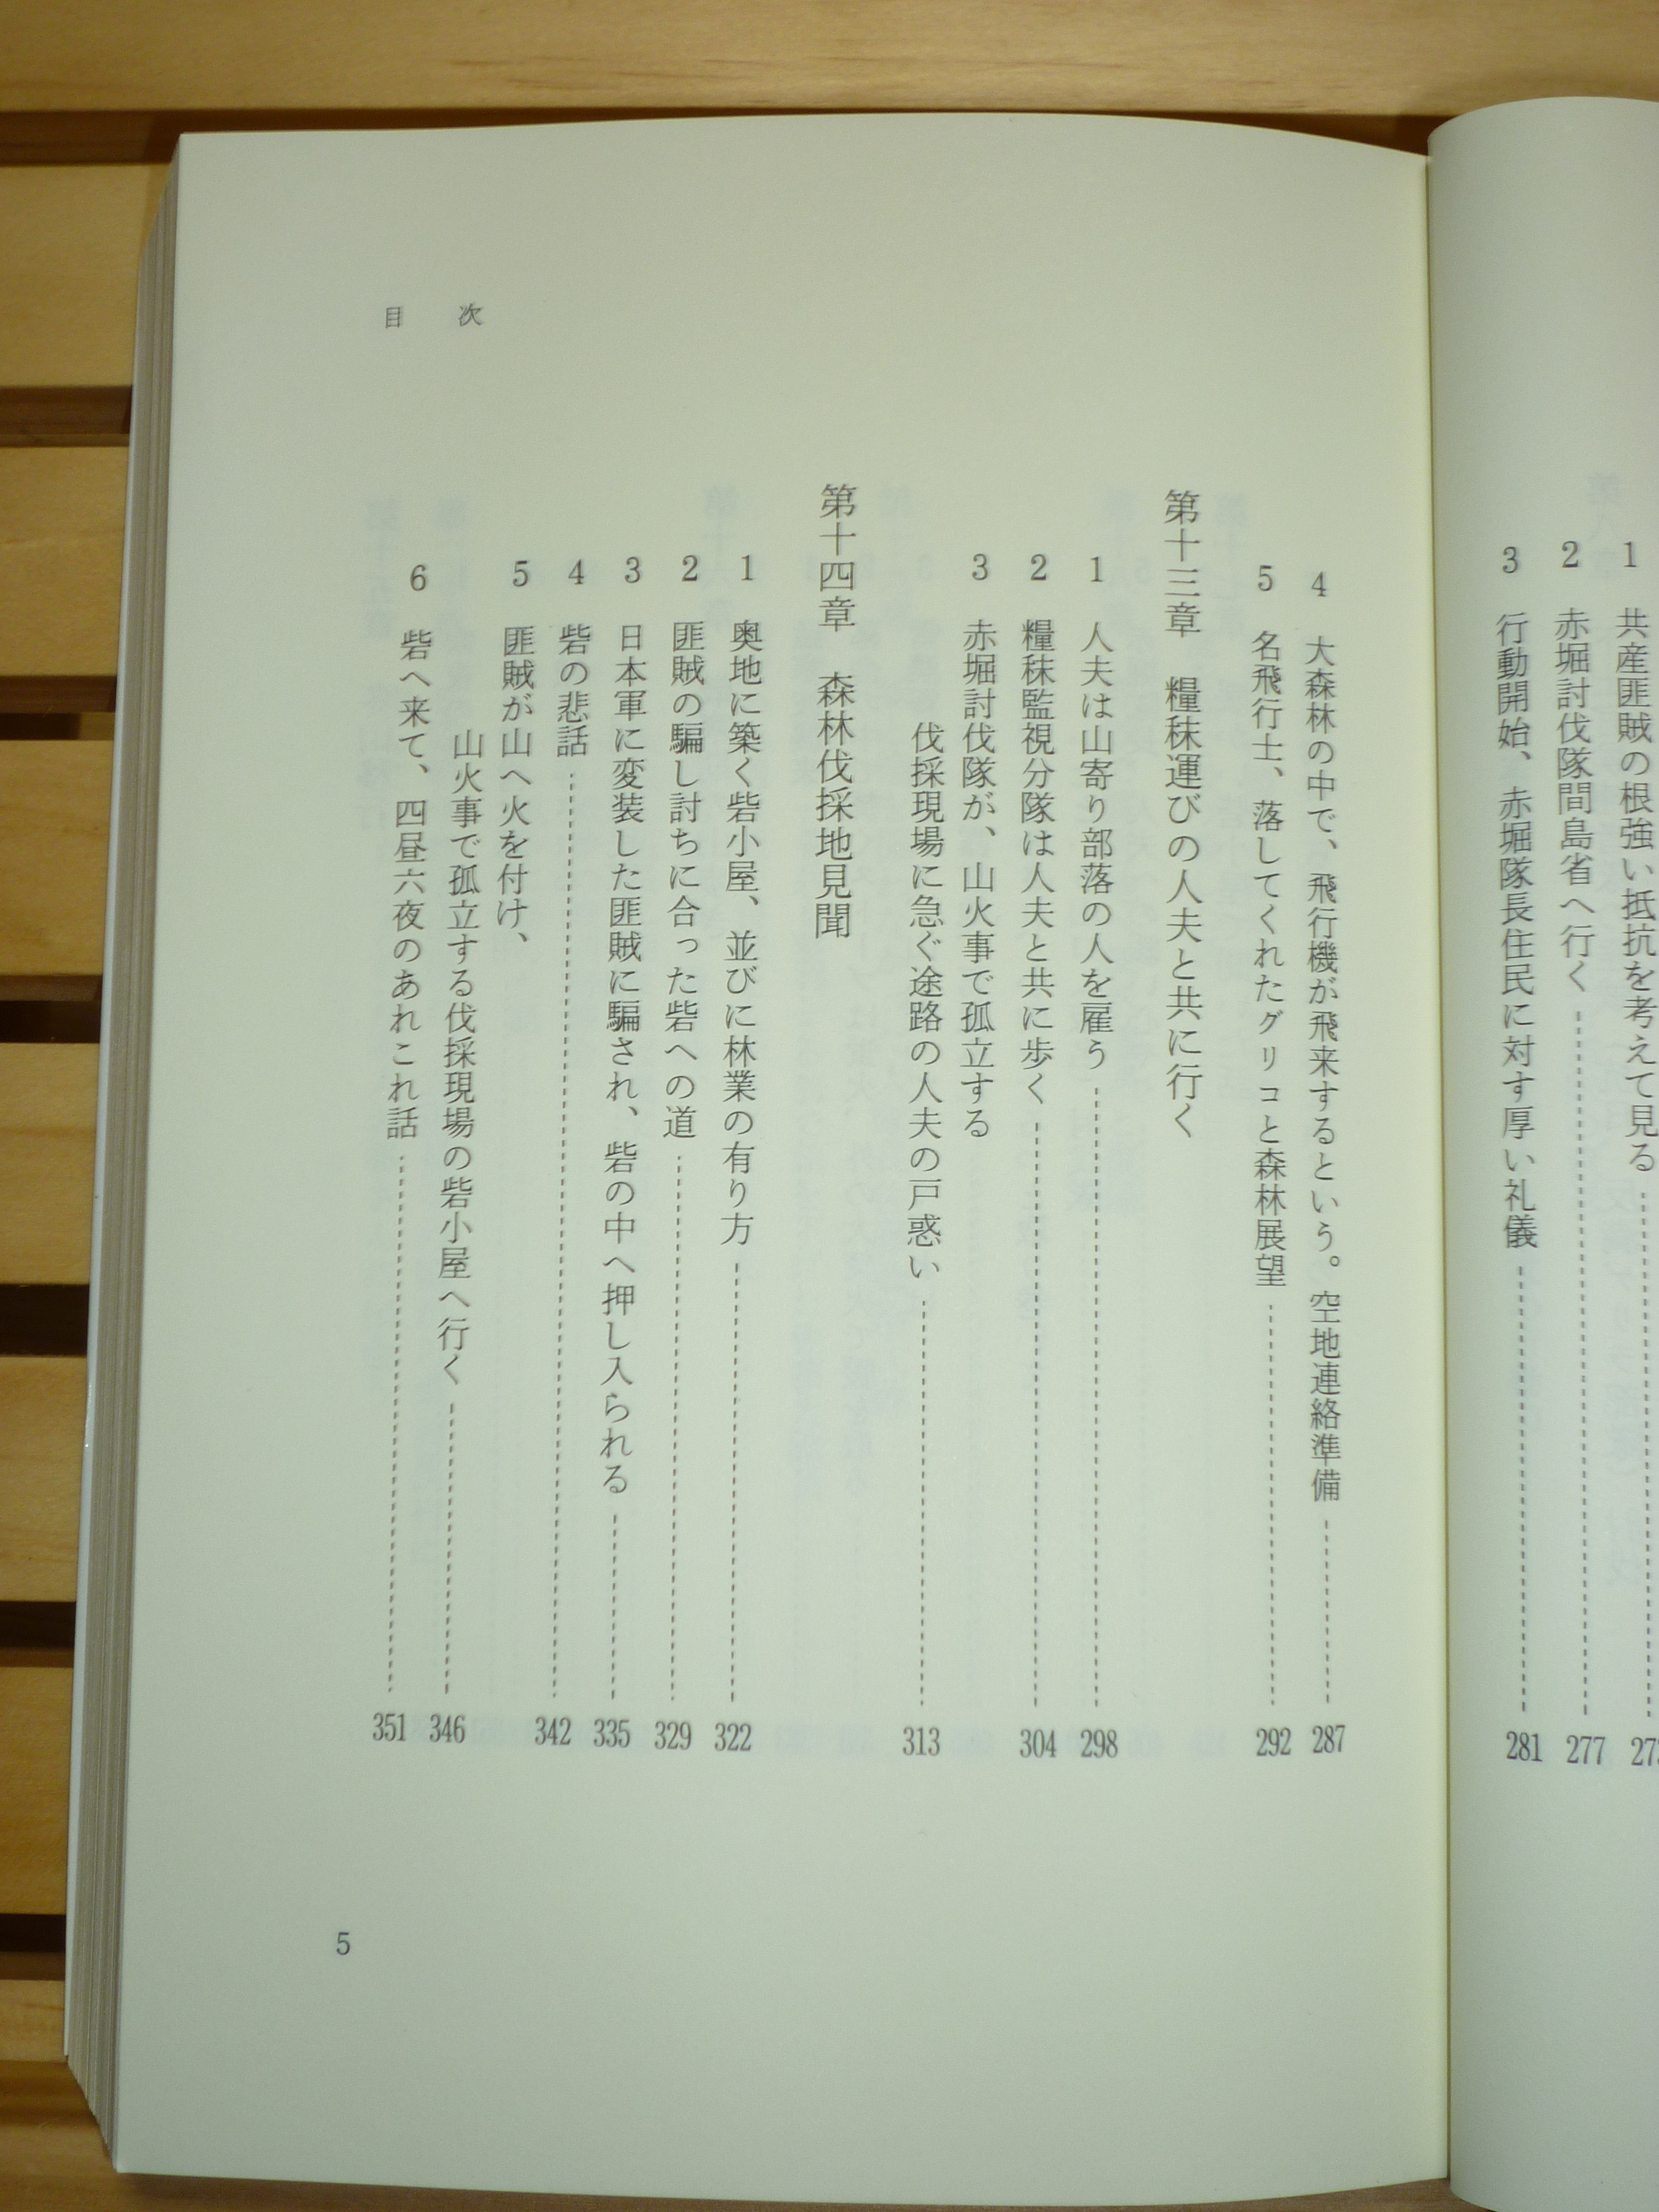 1 共産匪賊の根強い抵抗を考えて見る
2 赤堀討伐隊間島省へ行く 277
3 行動開始、赤堀隊長住民に対す厚い礼儀 281
目次
4 大森林の中で、飛行機が飛来するという。空地連絡準備 287
5 名飛行士、落してくれたグリコと森林展望 292
第十三章 糧秣運びの人夫と共に行く
1 人夫は山寄り部落の人を雇う 298
2 糧秣監視分隊は人夫と共に歩く 304
3 赤堀討伐隊が、山火事で孤立する
伐採現場に急ぐ途路の人夫の戸惑い 313
第十四章 森林伐採地見聞
1 奥地に築く砦小屋、並びに林業の有り方 322
2 匪賊の騙し討ちに合った砦への道 329
3 日本軍に変装した匪賊に騙され、砦の中へ押し入られる 335
4 砦の悲話 342
5 匪賊が山へ火を付け、
山火事で孤立する伐採現場の砦小屋へ行く 346
6 砦へ来て、四昼六夜のあれこれ話 351
5